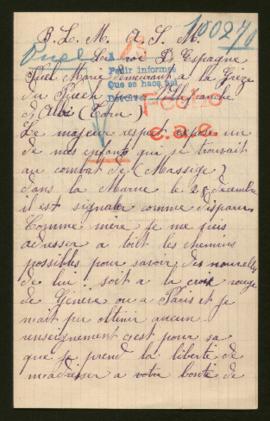 B. L. M. A. S. M.
100270
Le roi D. Espagne
Marie demeurant a la
Pedir informes
Que se haga
du
d Albi (Tarn)
Le majeur respet expose un
de mes enfans qui se trouvait
au combat de (Massige)
dans la Marne le 28 decembre
il est signale comme disparu
Comme mère je me suis
adresser a toit les chemins
possibles pour savoir des nouvelles
de lui soit a la croix rouge
de Genève ou a Paris et je
nait pu obtenir aucun
renseignement c'est pour sa
que je prend la liberté de
m'adresser a votre bonté de